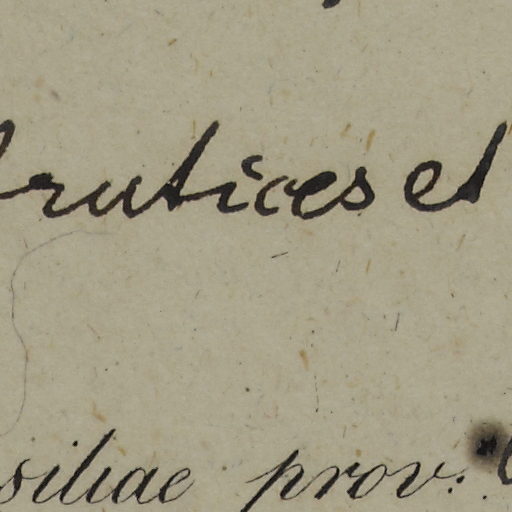 frutices et
siliae prov.